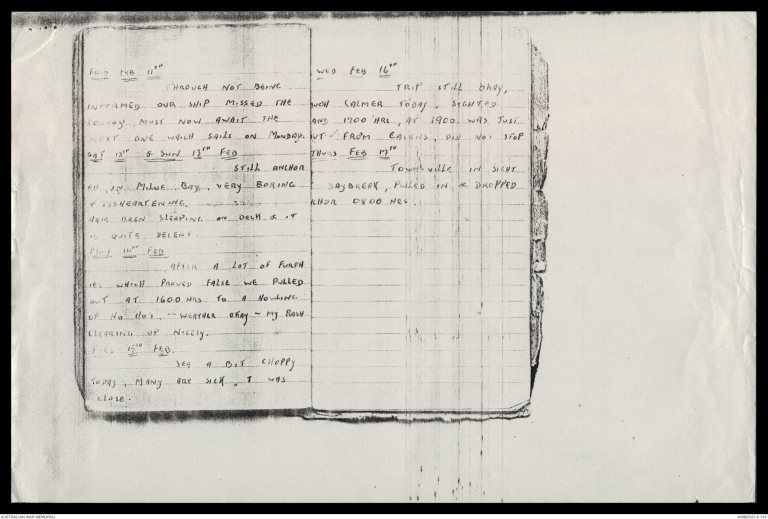 FRID FEB 11TH
THROUGH NOT BEING
INFORMED OUR SHIP MISSED THE
CONVOY, MUST NOW AWAIT THE
NEXT ONE WHICH SAILS ON MONDAY.
SAT 12TH & SUN 13TH FEB
STILL ANCHOR
ED IN MILNE BAY, VERY BORING
& DISHEARTENING.
HAVE BEEN SLEEPING ON DECK & IT
IS QUITE DECENT
14TH FEB
AFTER A LOT OF FURPH
IES WHICH PROVED FALSE WE PULLED
OUT AT 1600 HRS TO A HOWLING
OF HO HO'S. - WEATHER OKAY - MY RASH
CLEARING UP NICELY.
15TH FEB.
SEA A BIT CHOPPY
TODAY, MANY ARE SICK, I WAS
CLOSE.
WED FEB 16TH
TRIP STILL OKAY,
CALMER TODAY, SIGHTED
AND 1700 HRS, AT 1900 WAS JUST
OUT FROM CAIRNS, DID NOT STOP
THURS FEB 17TH
TOWNSVILLE IN SIGHT
DAYBREAK, PULLED IN & DROPPED
CHOR 0800 HRS.
AUSTRALIAN WAR MEMORIAL